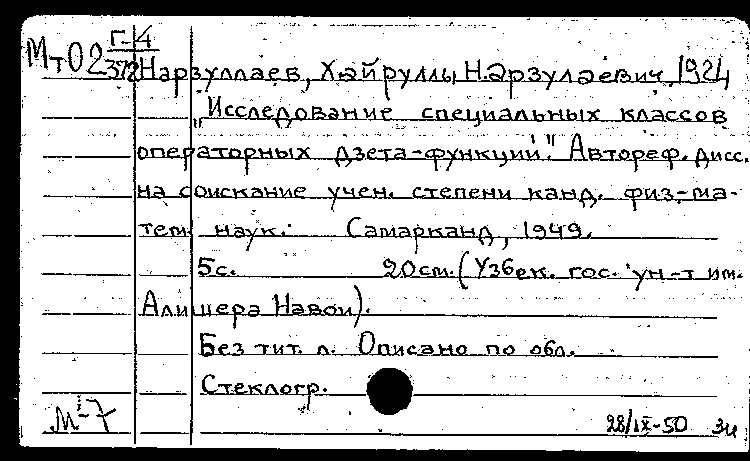 Мт02 Г-4/372
Нарзуллаев, Хайруллы Нарзулаевич, 1924
"Исследование специальных классов
операторных дзета-функций." Автореф. дисс.
на соискание учен. степени канд. физ-ма-
тем. наук. Самарканд, 1949.
5с. 20см. (Узбек. гос. ун-т им.
Алишера Навои).
Без тит. л. Описано по обл.
Стеклогр.
М-7 28/IX-50 Зи